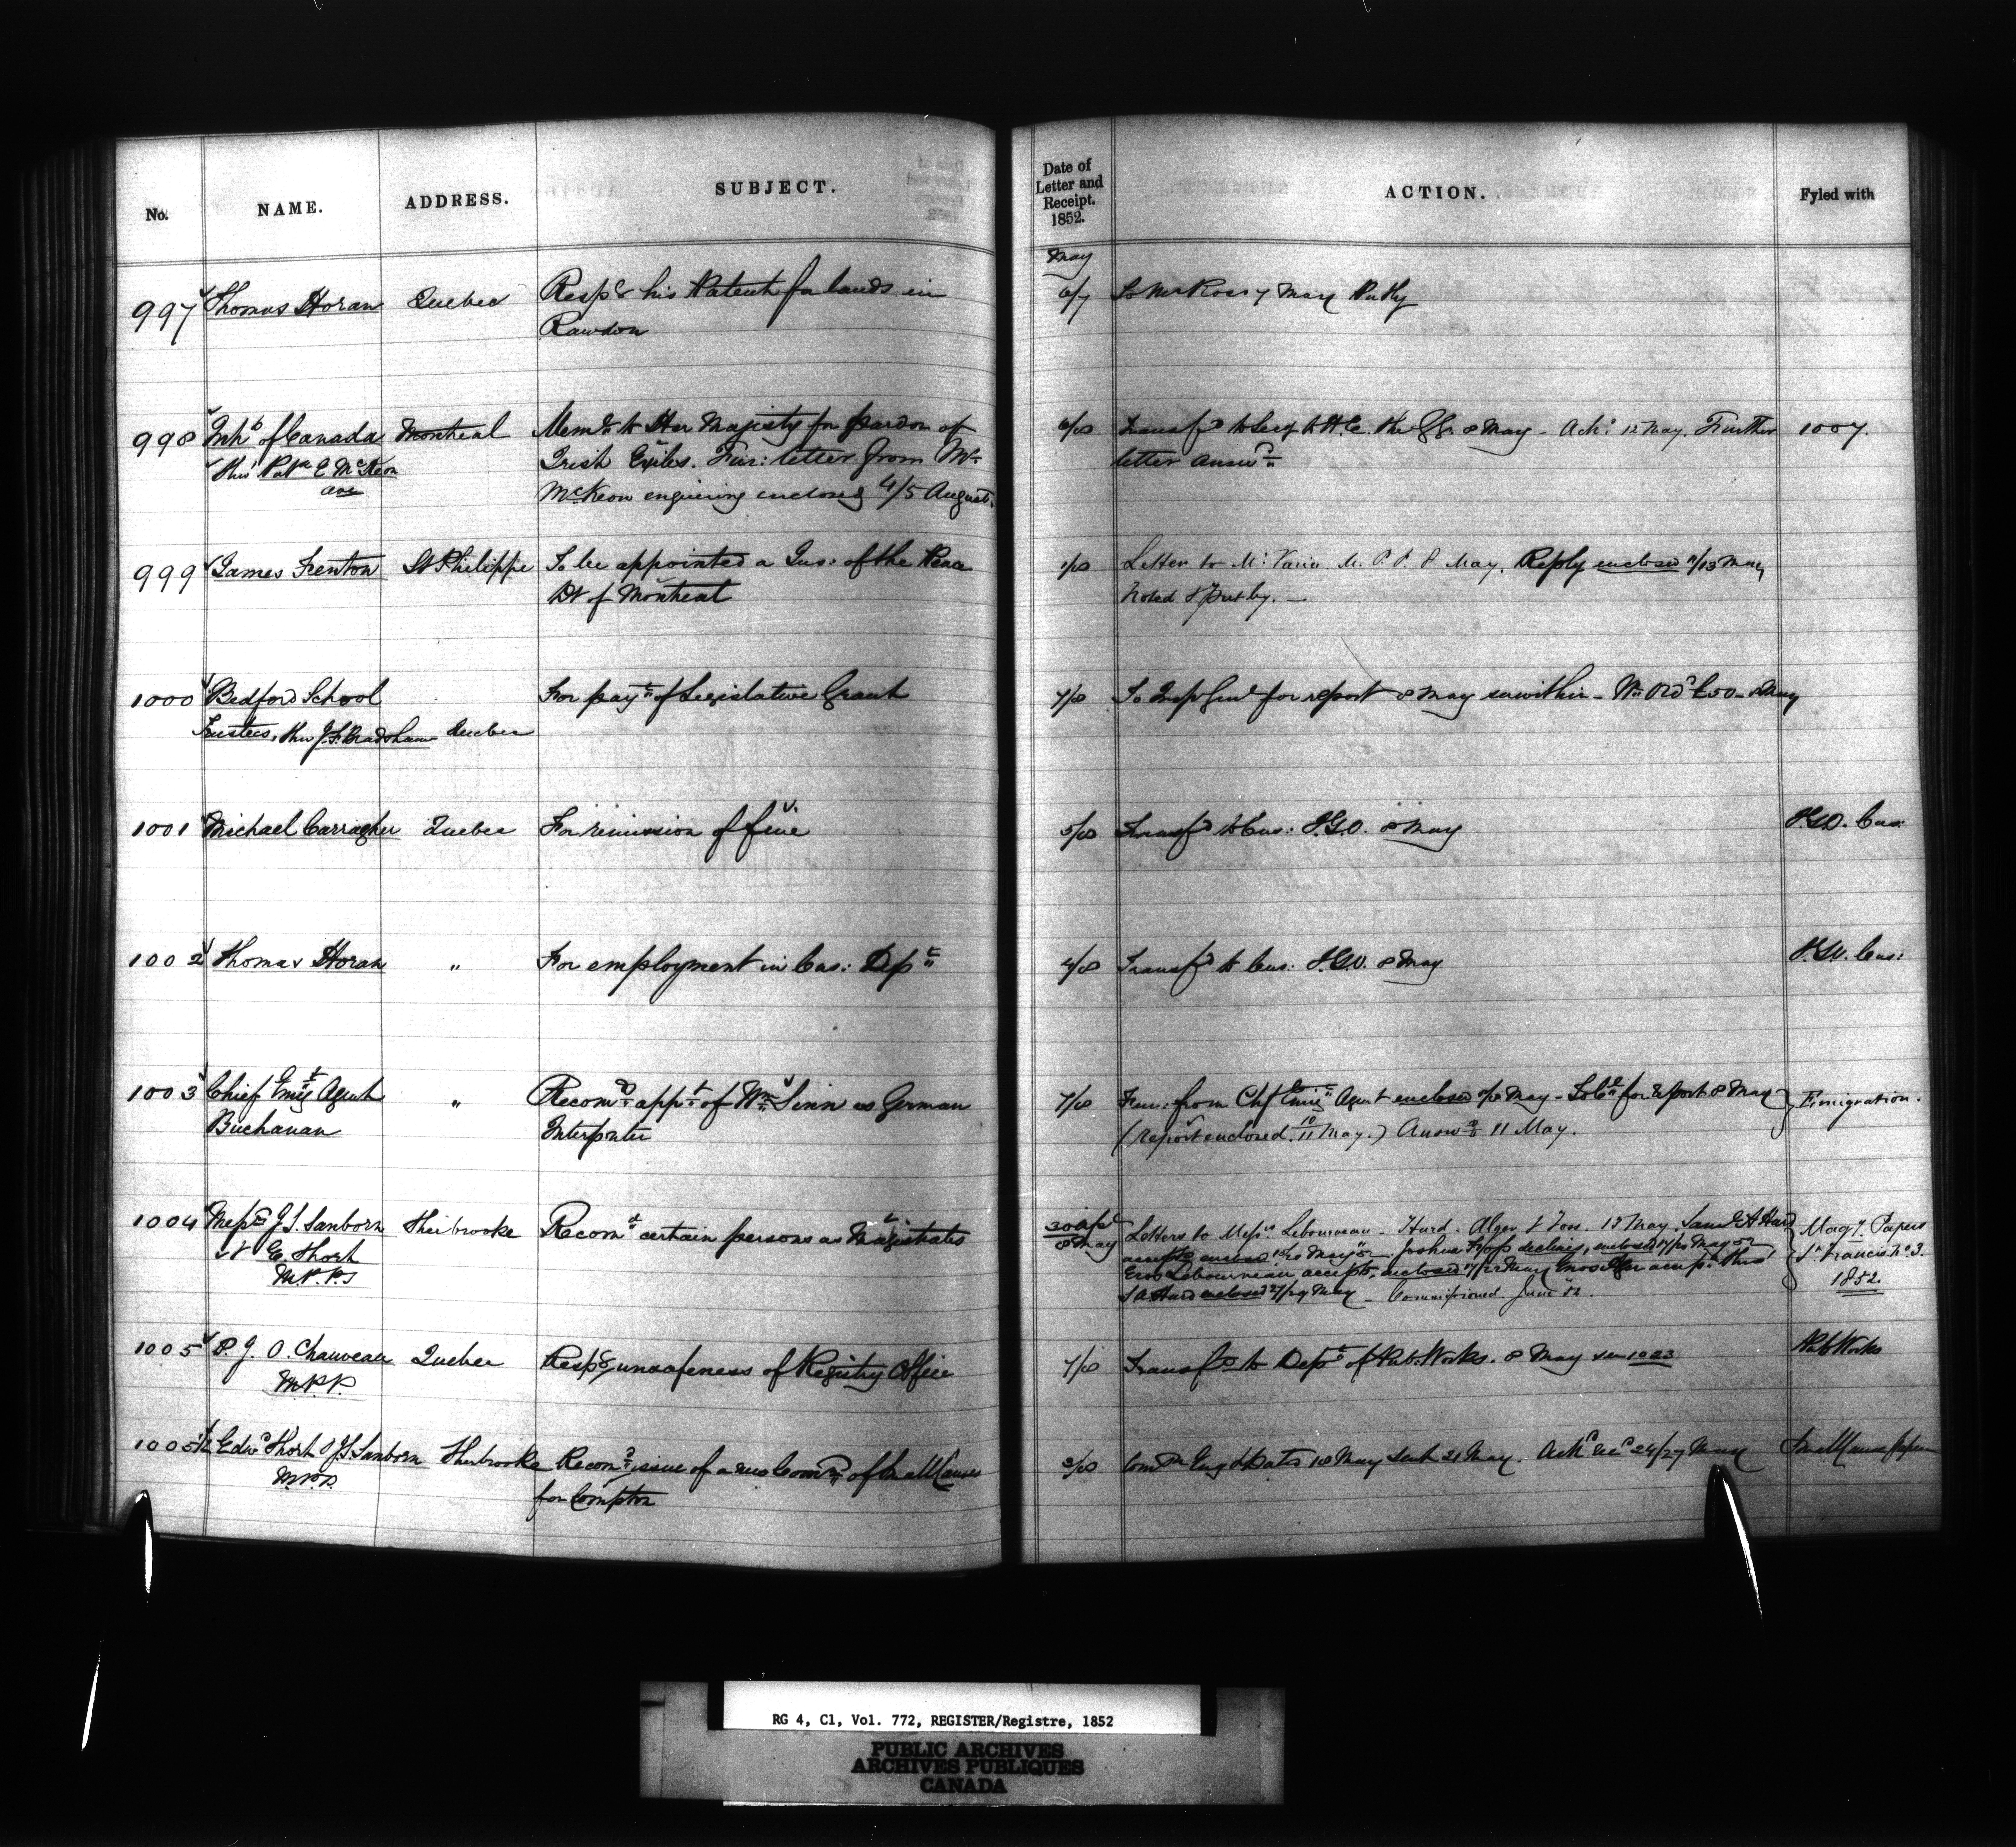 No. NAME. ADDRESS. SUBJECT. Date of Letter and Receipt. 1852. ACTION. Fyled with
May
997 Thomas Horan Quebec Resp^g his Patent for lands in 6/7 To Mr Ross 7 May Put by
Rawdon
998 Inh^ts of Canada Montreal Mem^l to Her Majesty for pardon of 6/8 Transf^d to Secy to H.E. the GG. 8 May - Ack^d 12 May. Further 1007.
thro' Pat^k E McKeon Irish Exiles. Fur: letter from Mr letter answ^d
McKeon enquiring enclosed 4/5 August.
999 James Fenton St Philippe To be appointed a Jus: of the Peace 1/8 Letter to Mr Varin M.P.P. 8 May. Reply enclosed 11/13 May
Dt of Montreal Noted & put by. —
1000 Bedford School For pay^t of Legislative Grant 7/8 To Insp Genl for report 8 May enwithin - Wt Ord^d £50 - 8 May
Trustees, thro J.F. Bradshaw Quebec
1001 Michael Carragher Quebec For remission of fine 5/8 Transf^d to Cus: P.G.O. 8 May P.G.O. Cus:
1002 Thomas Horan " For employment in Cus: Dep^t 4/8 Transf^d to Cus: P.G.O. 8 May P.G.O. Cus:
1003 Chief Emig^t Agent " Recom^g app^t of Wm Sinn as German 7/8 Fur: from Chf Emig^t Agent enclosed 8 May - To Col^l for Report 8 May Emigration.
Buchanan Interpreter (report enclosed 10/11 May.) Answ^d 11 May.
1004 Mess^rs J.S. Sanborn Sherbrooke Recom^g certain persons as Magistrates 30 Apl Letters to Mess^rs Lebourveau - Hurd - Alger & Foss. 12 May. Saml A Hurd Mag^y Papers
& E. Short 8 May accepts enclosed 18/20 May. Joshua Foss declines, enclosed 17/20 May St Francis No 3.
M.P.P.s Eros Lebourveau accepts, enclosed 17/22 May Enos Alger accep: thro' 1852.
S A. Hurd enclosed 27/29 May - Commissioned June 52.
1005 P. J. O. Chauveau Quebec Resp^g unsafeness of Registry Office 7/8 Transf^d to Dep^t of Pub: Works. 8 May see 1023 Pub Works
M.P.P.
1005½ Edw^d Short & JS Sanborn Sherbrooke Recom^g issue of a new Com^n of Small Causes 3/8 Com^n Eng^d dated 18 May sent 21 May. Ack^d rec^d 24/27 May Small Cause papers
M.P.P. for Compton
RG 4, C1, Vol. 772, REGISTER/Registre, 1852
PUBLIC ARCHIVES
ARCHIVES PUBLIQUES
CANADA